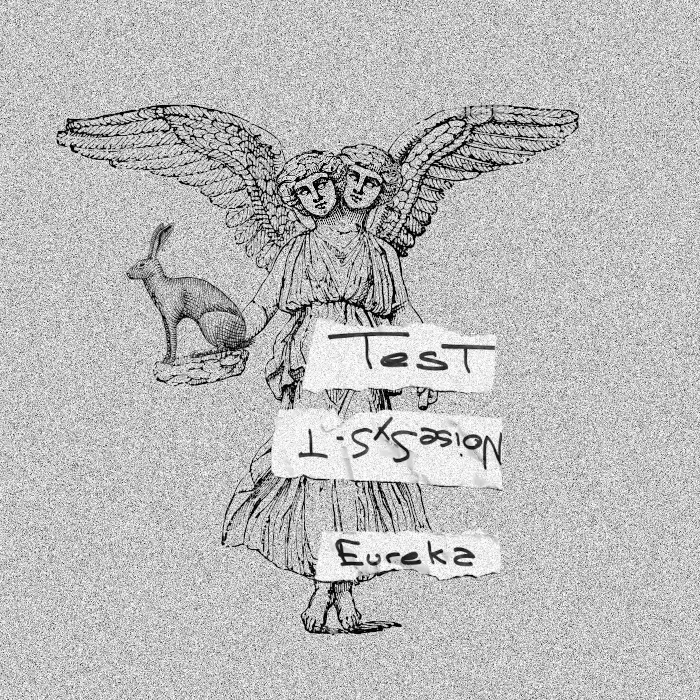 TesT
NoiseSyS-T
Eureka